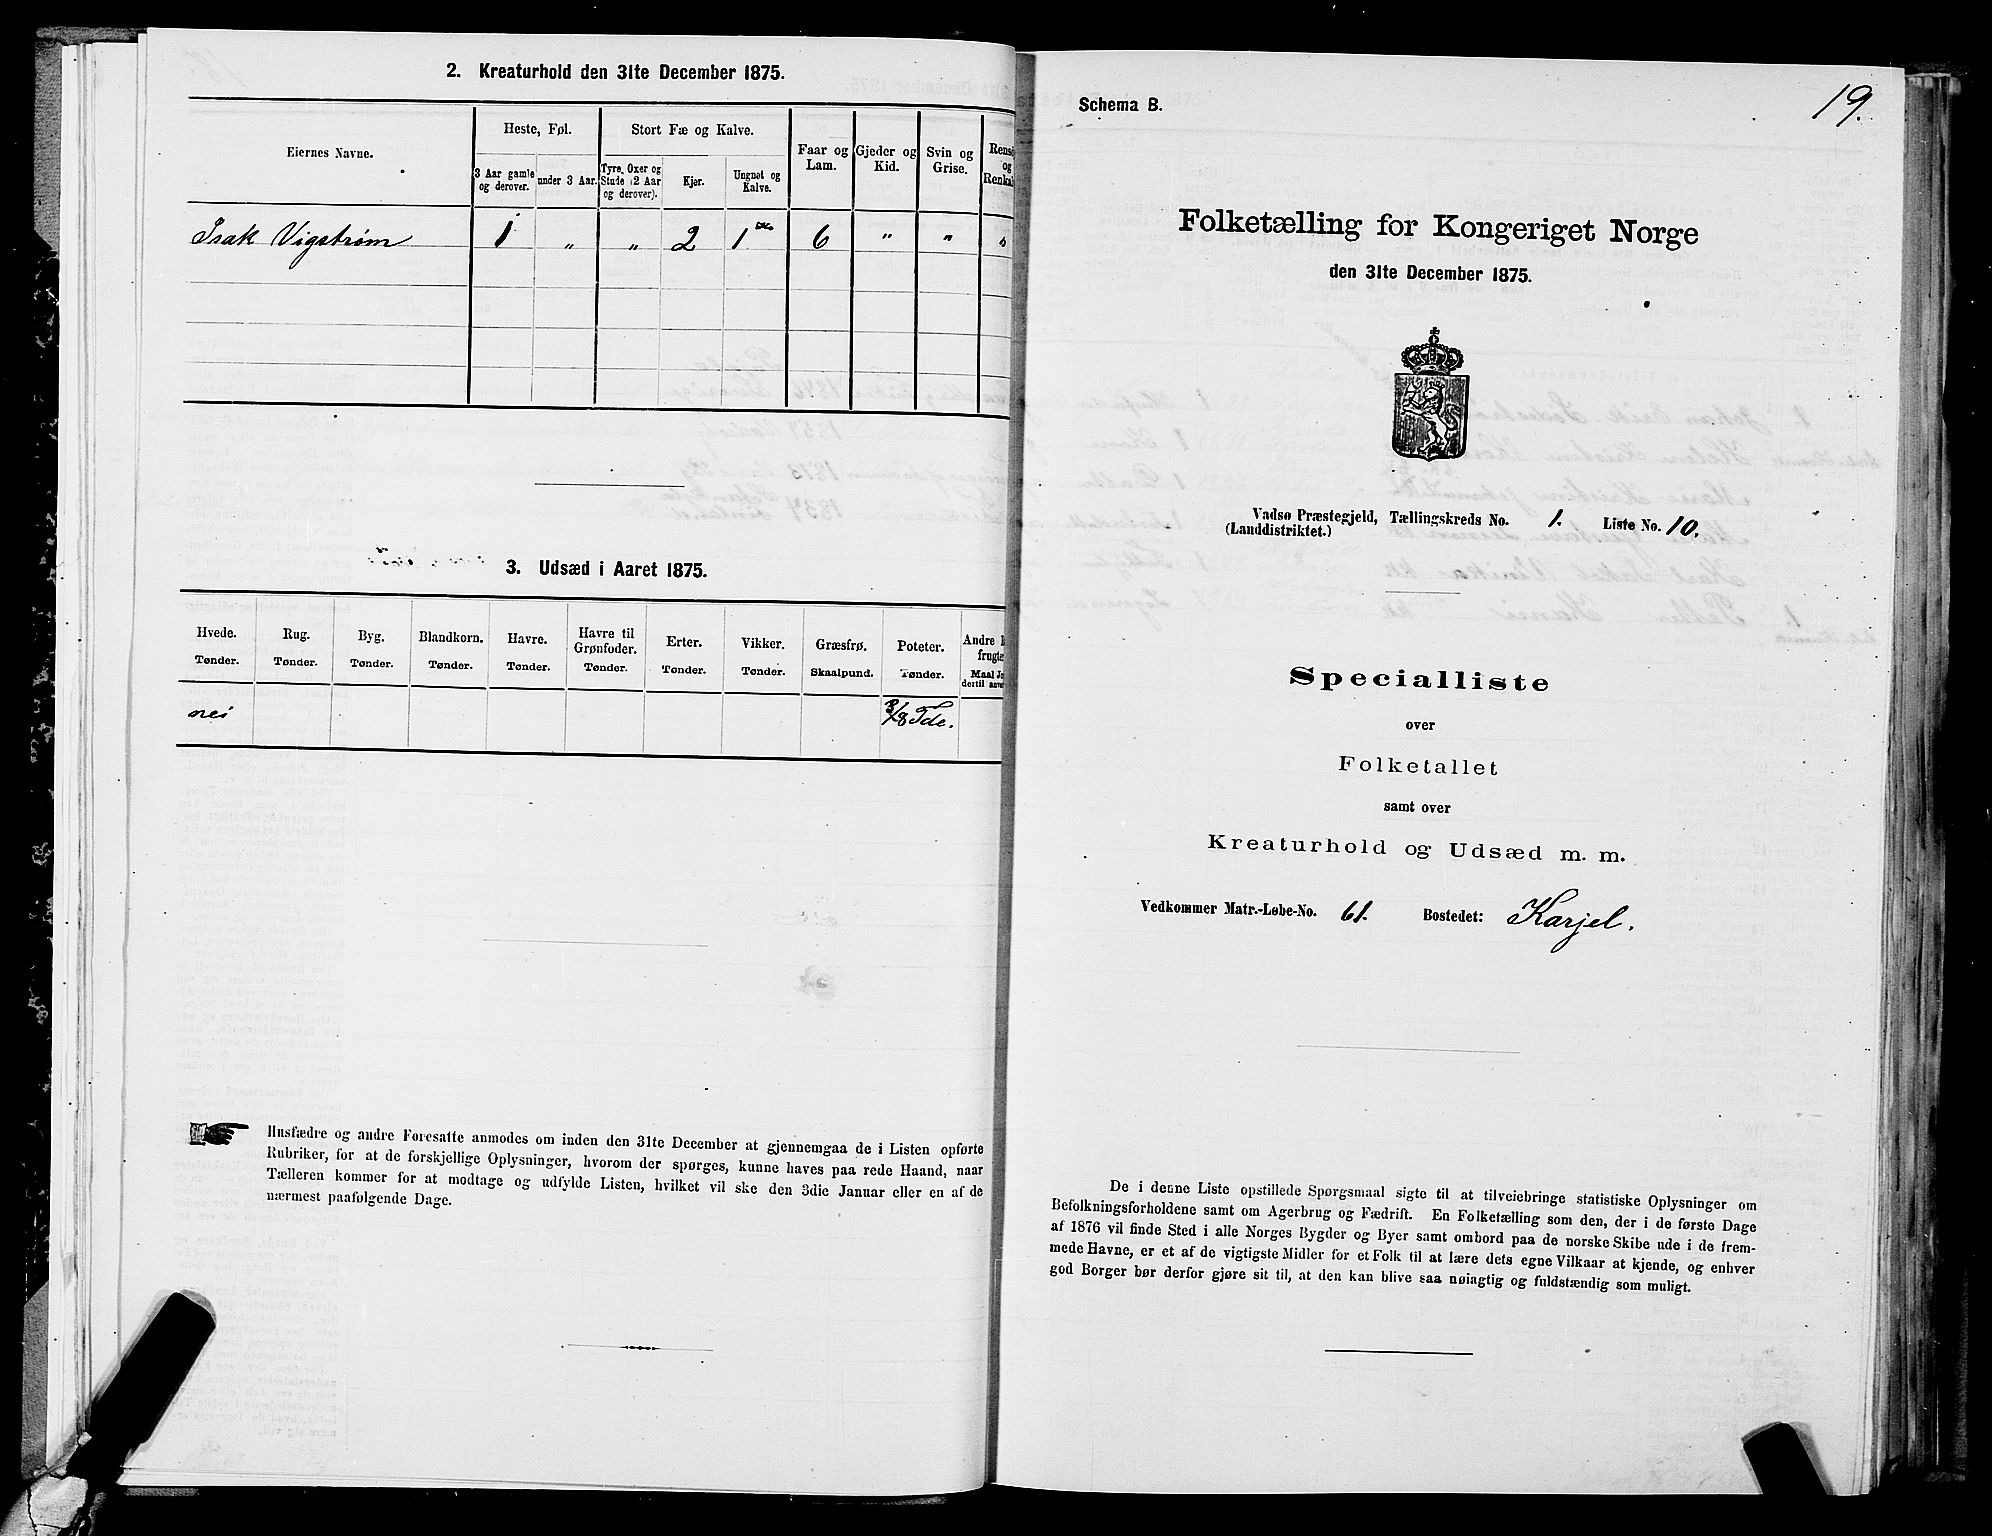 2. Kreaturhold den 31te December 1875.
Eiernes Navne.
Heste, Føl.
Stort Fæ og Kalve.
Faar og Lam.
Gjeder og Kid.
Svin og Grise.
og
3 Aar gamle og derover.
under 3 Aar.
Tyre, Oxer og Stude (2 Aar og derover).
Kjør.
Ungnøt og Kalve.
Isak Vigstrøm 1 „ „ 2 1 6 „ „ „
3. Udsæd i Aaret 1875.
Hvede. Rug. Byg. Blandkorn. Havre. Havre til Grønfoder. Erter. Vikker. Græsfrø. Poteter. Andre
Tønder. Tønder. Tønder. Tønder. Tønder. Tønder. Tønder. Tønder. Skaalpund. Tønder. Maal
nei 3/8 Tde.
Husfædre og andre Foresatte anmodes om inden den 31te December at gjennemgaa de i Listen opførte
Rubriker, for at de forskjellige Oplysninger, hvorom der spørges, kunne haves paa rede Haand, naar
Tælleren kommer for at modtage og udfylde Listen, hvilket vil ske den 3die Januar eller en af de
nærmest paafølgende Dage.
19.
Schema B.
Folketælling for Kongeriget Norge
den 31te December 1875.
Vadsø Præstegjeld, Tællingskreds No. 1. Liste No. 10.
(Landdistriktet.)
Specialliste
over
Folketallet
samt over
Kreaturhold og Udsæd m. m.
Vedkommer Matr.-Løbe-No. 61. Bostedet: Karjel.
De i denne Liste opstillede Spørgsmaal sigte til at tilveiebringe statistiske Oplysninger om
Befolkningsforholdene samt om Agerbrug og Fædrift. En Folketælling som den, der i de første Dage
af 1876 vil finde Sted i alle Norges Bygder og Byer samt ombord paa de norske Skibe ude i de frem-
mede Havne, er et af de vigtigste Midler for et Folk til at lære dets egne Vilkaar at kjende, og enhver
god Borger bør derfor gjøre sit til, at den kan blive saa nøiagtig og fuldstændig som muligt.